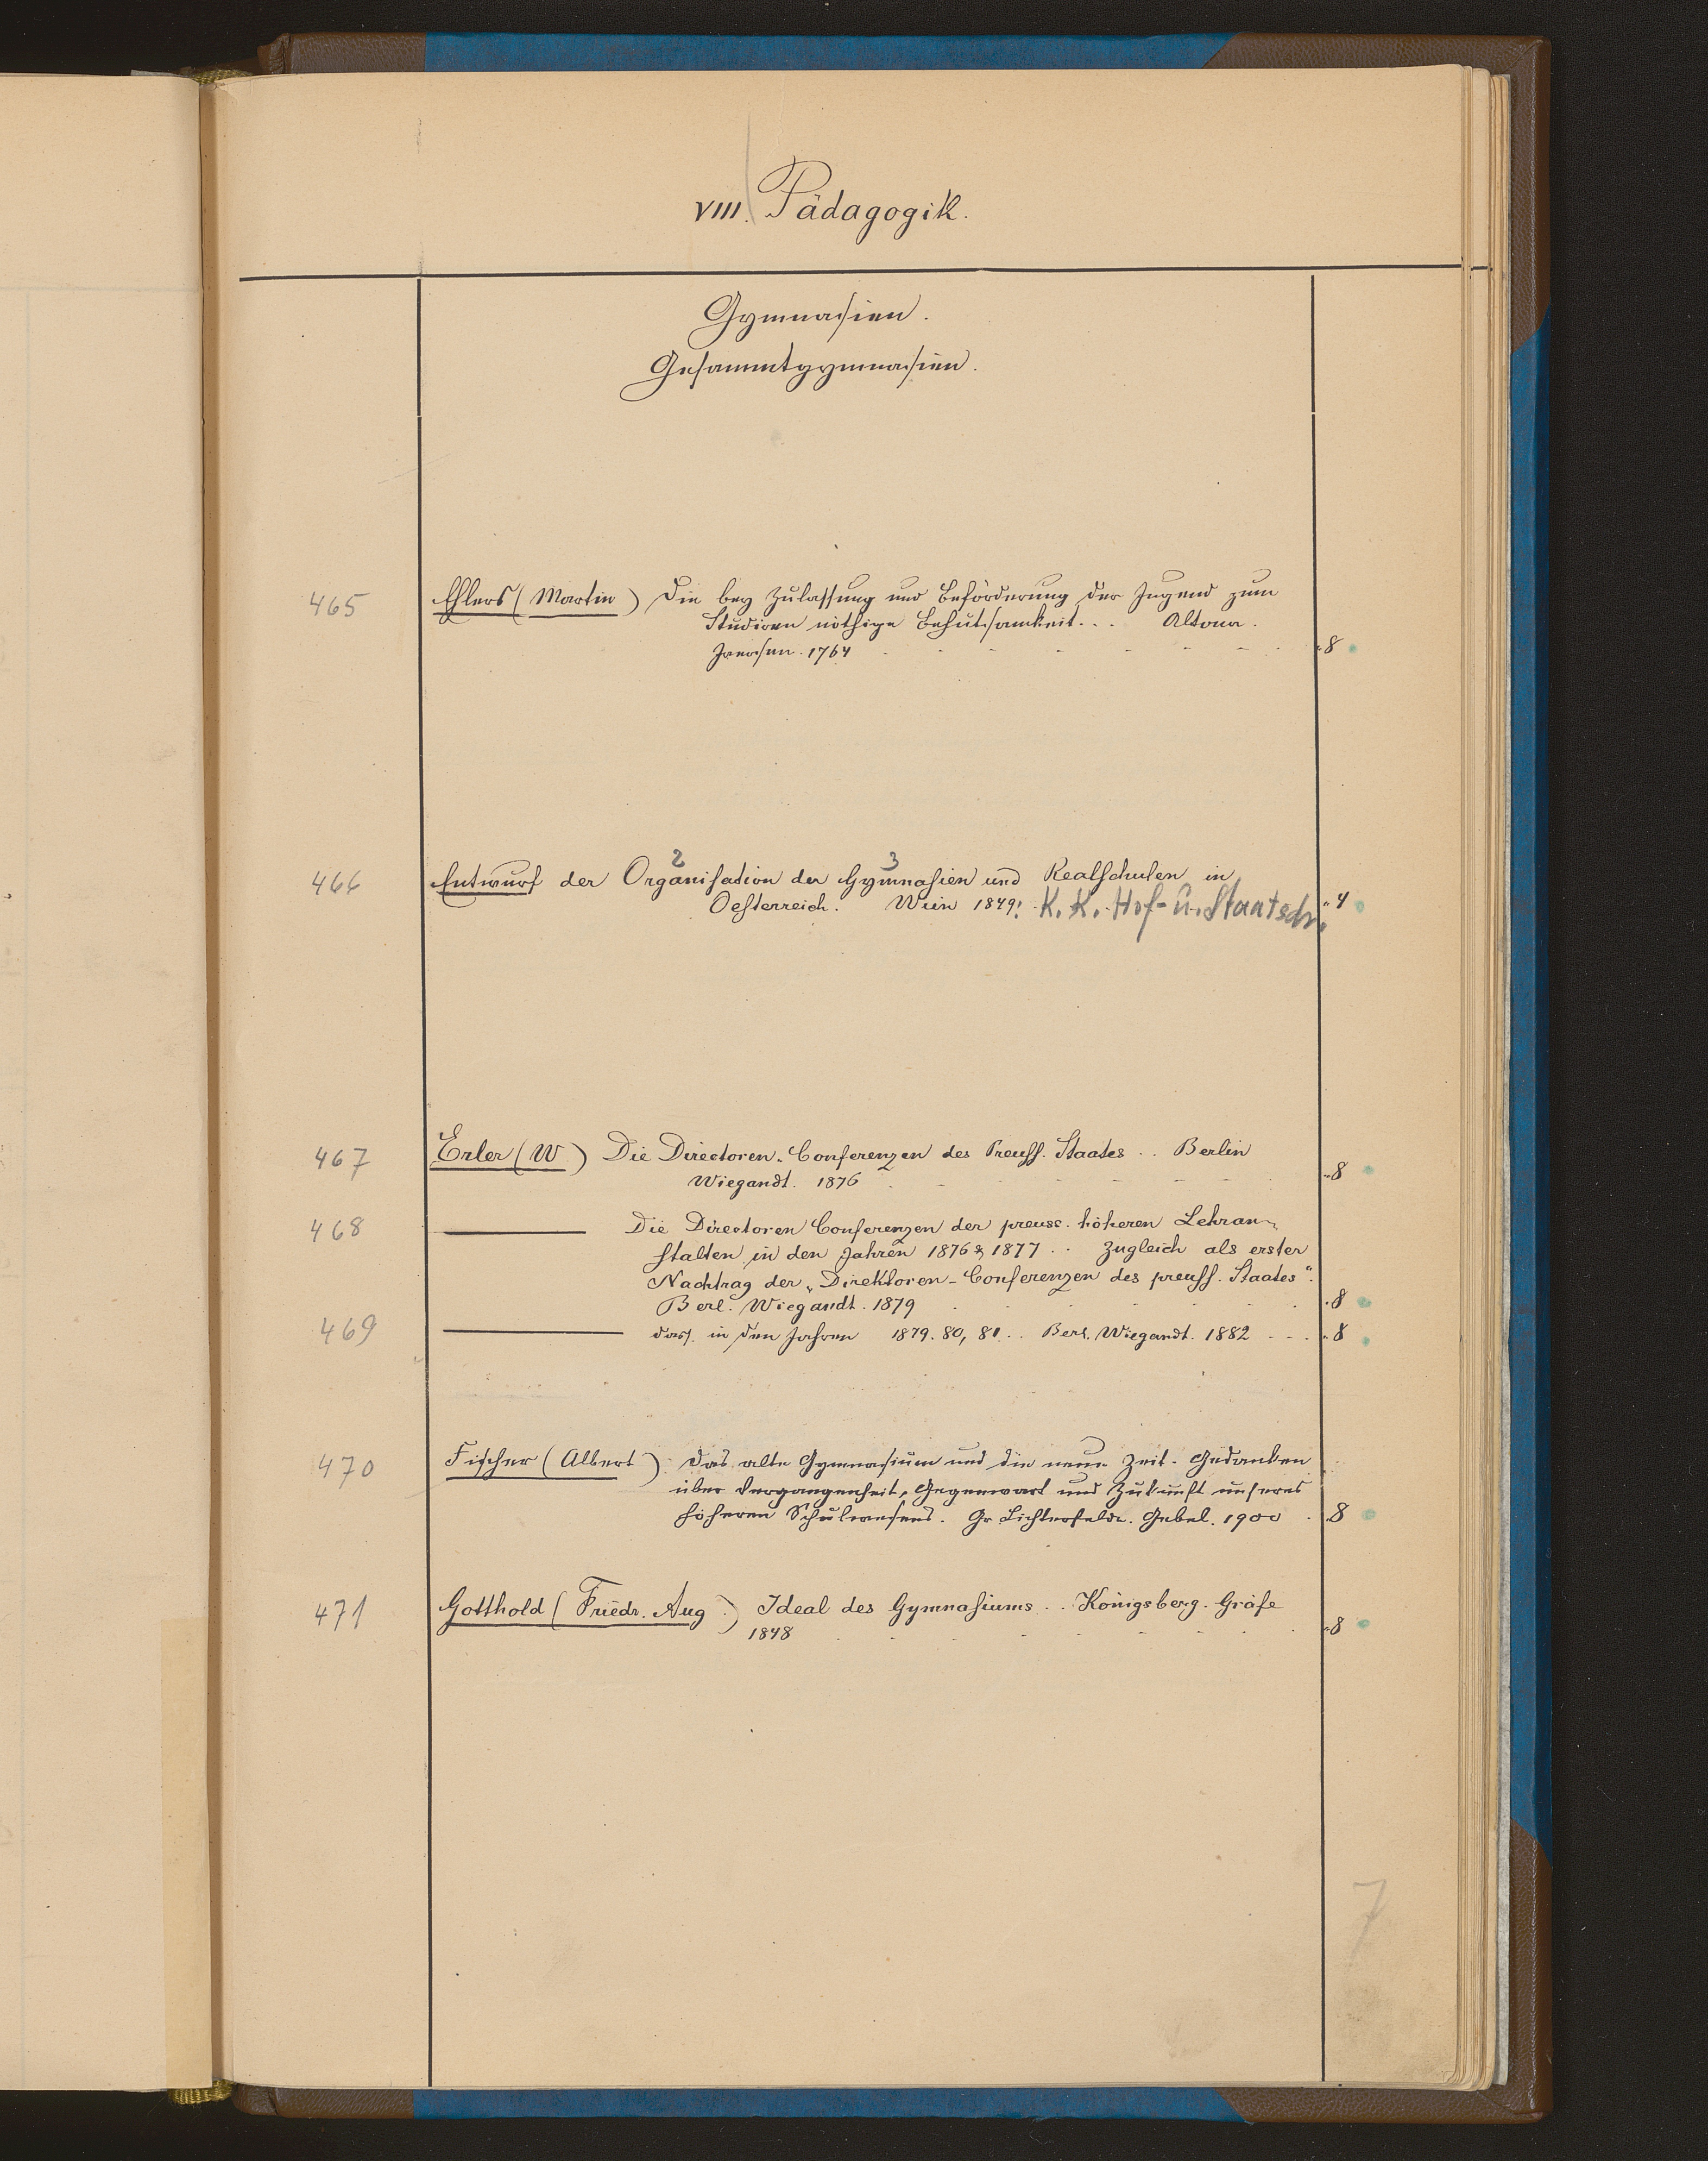 VIII. Pädagogik.
Gymnasien.
Gesammtgymnasien.
465 Ehlers (Martin) Die bey Zulassung und Beförderung der Jugend zum
Studiren nöthige Behutsamkeit... Altona.
Iversen. 1764 "8
2 3
466 Entwurf der Organisation der Gymnasien und Realschulen in
Oesterreich. Wien 1849. K. K. Hof- u. Staatsdr. "4
467 Erler (W) Die Directoren-Conferenzen des Preuss. Staates .. Berlin
Wiegandt. 1876 "8
468 Die Directoren Conferenzen der preuss. höheren Lehran-
stalten in den Jahren 1876 & 1877 .. Zugleich als erster
Nachtrag der „Direktoren-Conferenzen des preuss. Staates“.
Berl. Wiegandt. 1879 "8
469 dass. in den Jahren 1879. 80, 81 .. Berl. Wiegandt. 1882 "8
470 Fischer (Albert) Das alte Gymnasium und die neue Zeit. Gedanken
über Vergangenheit, Gegenwart und Zukunft unseres
höheren Schulwesens. Gr Lichterfelde. Gebel. 1900 "8
471 Gotthold (Friedr. Aug.) Ideal des Gymnasiums .. Königsberg. Gräfe
1848 "8
7